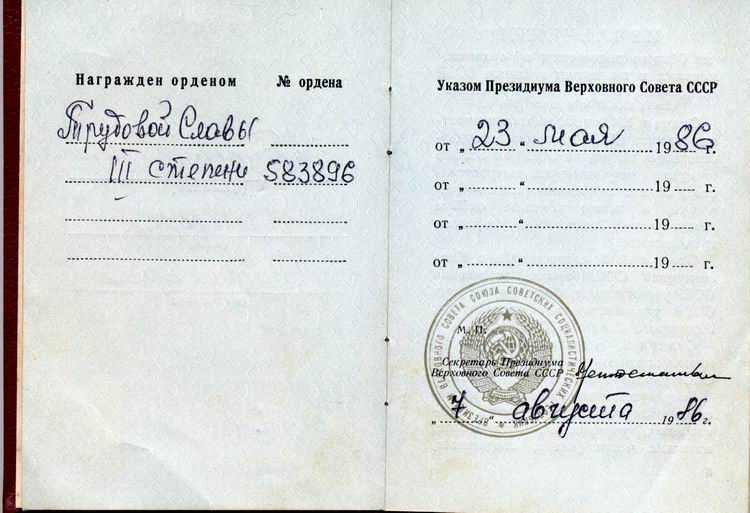 Награжден орденом № ордена
Трудовой Славы
III степени 583896
Указом Президиума Верховного Совета СССР
от „ 23 “ мая 1986 г.
от „ “ 19 г.
от „ “ 19 г.
от „ “ 19 г.
М. П.
Секретарь Президиума
Верховного Совета СССР
„ 7 “ августа 1986 г.
ВЕРХОВНОГО СОВЕТА СОЮЗА СОВЕТСКИХ СОЦИАЛИСТИЧЕСКИХ